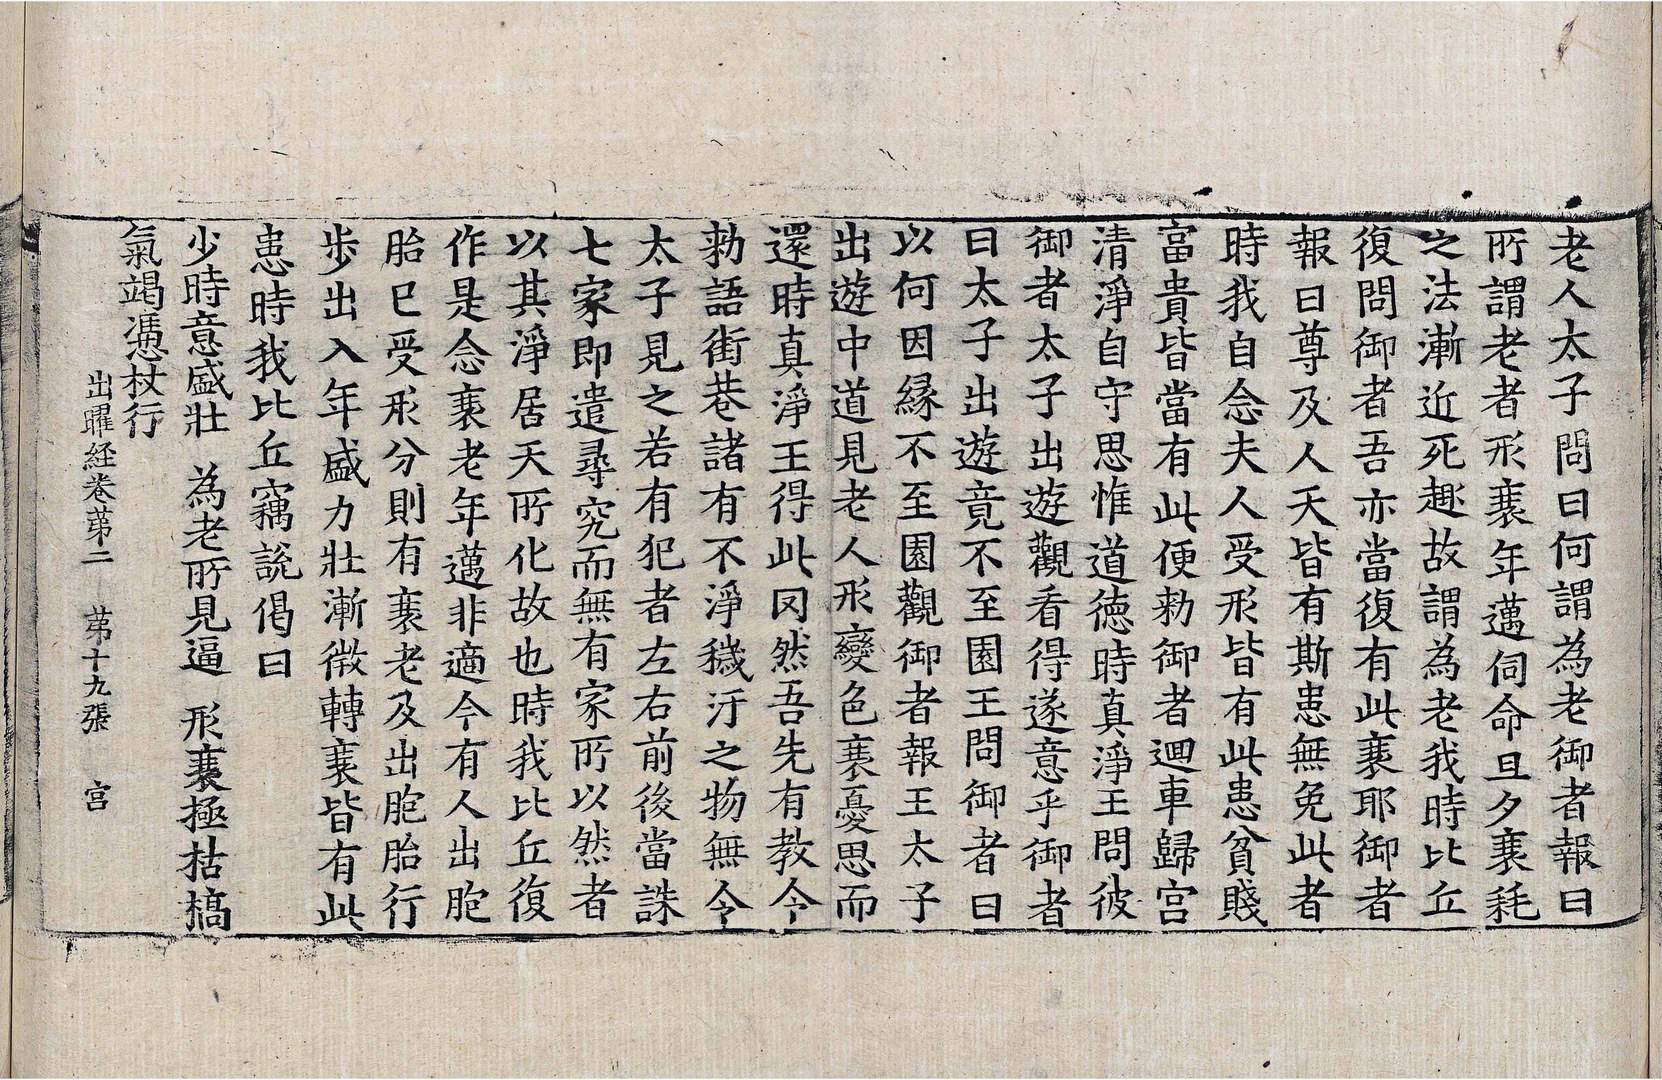 老人太子問曰何謂為老御者報曰
所謂老者形衰年邁伺命旦夕衰耗
之法漸近死趣故謂為老我時比丘
復問御者吾亦當復有此衰耶御者
報曰尊及人天皆有斯患無免此者
時我自念夫人受形皆有此患貧賤
富貴皆當有此便勑御者迴車歸宮
清淨自守思惟道德時真淨王問彼
御者太子出遊觀看得遂意乎御者
曰太子出遊竟不至園王問御者曰
以何因縁不至園觀御者報王太子
出遊中道見老人形變色衰憂思而
還時真淨王得此因然吾先有教令
勑語街巷諸有不淨穢汙之物無令
太子見之若有犯者左右前後當誅
七家即遣尋究而無有家所以然者
以其淨居天所化故也時我比丘復
作是念衰老年邁非適今有人出胞
胎已受形分則有衰老及出胞胎行
步出入年盛力壯漸微轉衰皆有此
患時我比丘竊說偈曰
少時意盛壯　為老所見逼　形衰極枯槁
氣竭憑杖行
出曜経卷苐二　苐十九張　宮